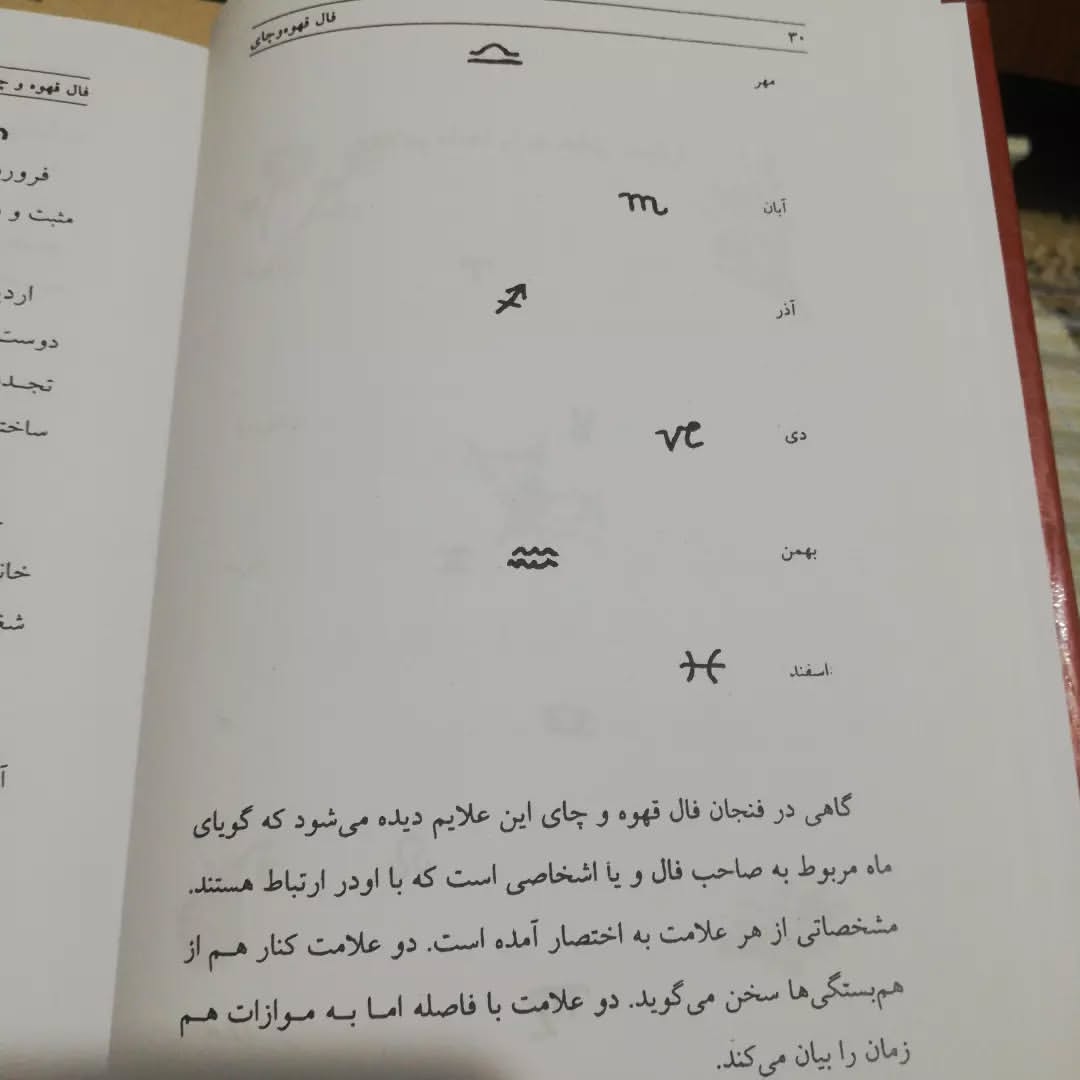 ۳۰
فال قهوه‌وچای
مهر
آبان
آذر
دی
بهمن
اسفند
گاهی در فنجان فال قهوه و چای این علایم دیده می‌شود که گویای
ماه مربوط به صاحب فال و یا اشخاصی است که با اودر ارتباط هستند.
مشخصاتی از هر علامت به اختصار آمده است. دو علامت کنار هم از
هم‌بستگی‌ها سخن می‌گوید. دو علامت با فاصله اما به موازات هم
زمان را بیان می‌کند.
فال قهوه و
مثبت و
دوست